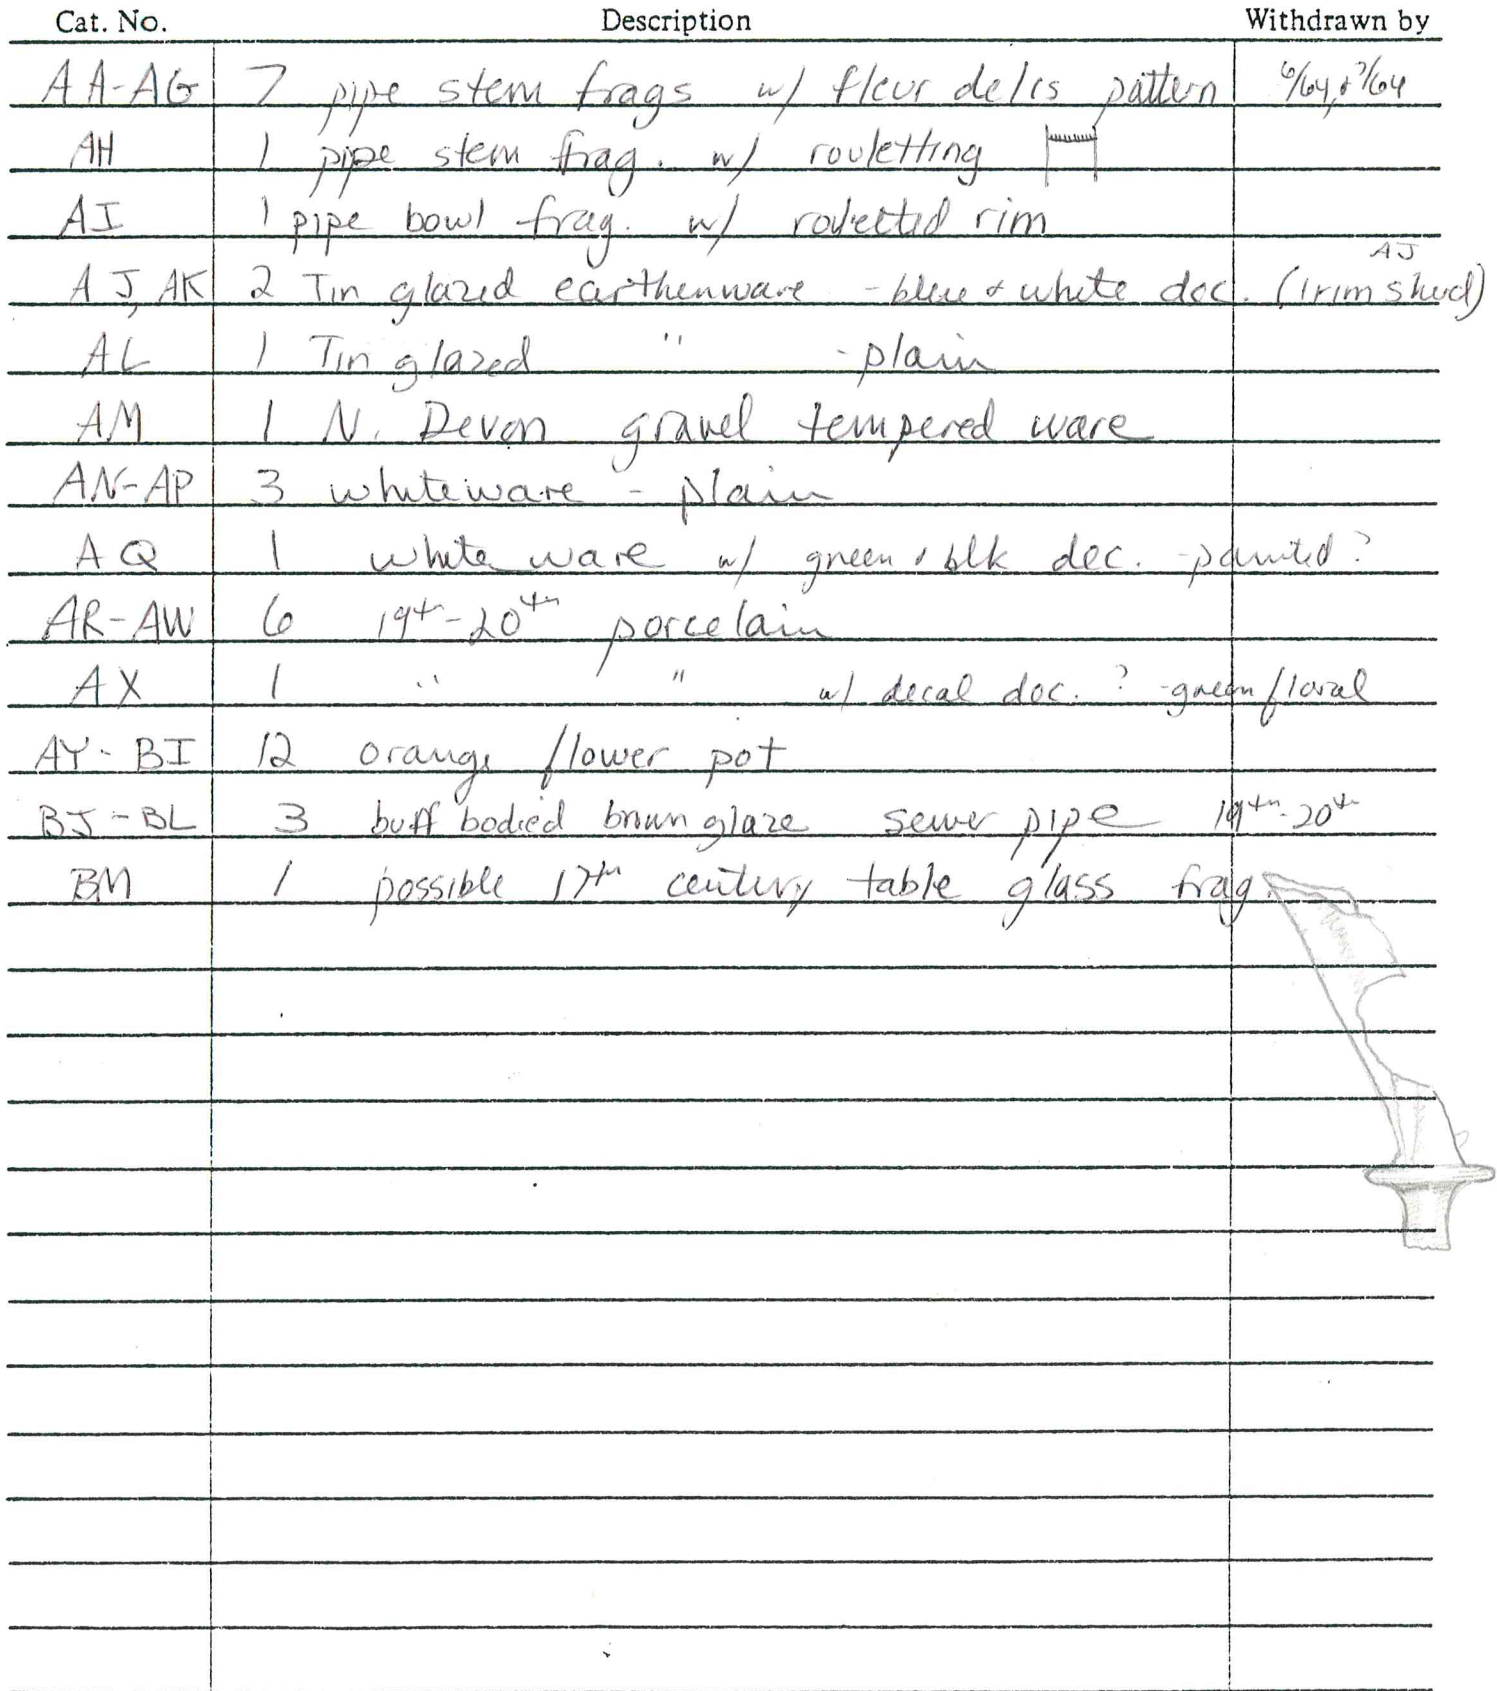 Cat. No. Description Withdrawn by
AA-AG 7 pipe stem frags w/ fleur de lis pattern 6/64, & 7/64
AH 1 pipe stem frag. w/ rouletting
AI 1 pipe bowl frag. w/ rouletted rim
AJ
AJ, AK 2 Tin glazed earthenware - blue & white dec. (1 rim sherd)
AL 1 Tin glazed " - plain
AM 1 N. Devon gravel tempered ware
AN-AP 3 whiteware - plain
AQ 1 white ware w/ green & blk dec. - painted?
AR-AW 6 19th-20th porcelain
AX 1 " " w/ decal dec. ? - green floral
AY- BI 12 orange flower pot
BJ-BL 3 buff bodied brown glaze sewer pipe 19th-20th
BM 1 possible 17th century table glass frag.